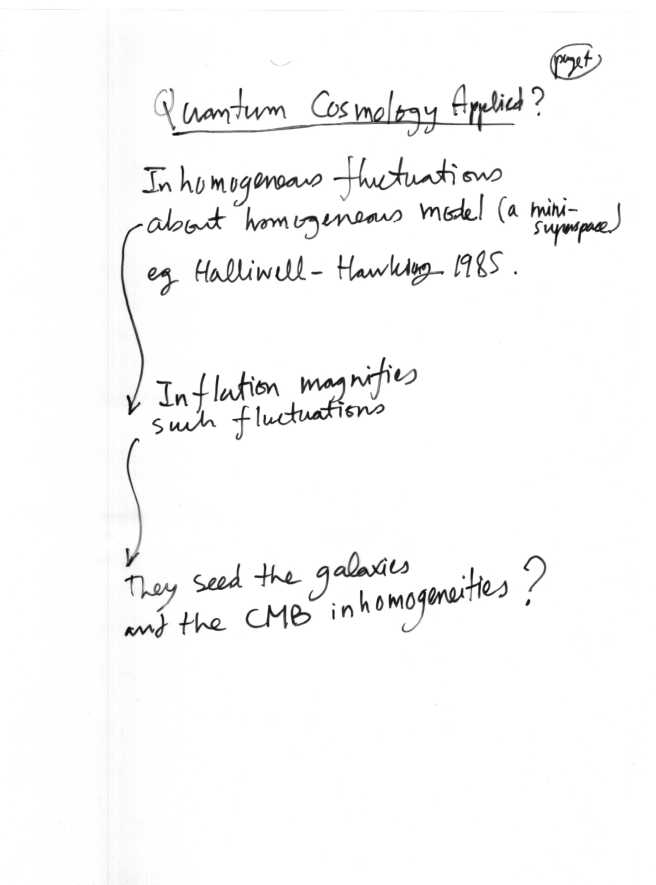 Quantum Cosmology Applied?
Inhomogeneous fluctuations
about homogeneous model (a mini-
superspace)
eg Halliwell - Hawking 1985.
Inflation magnifies
such fluctuations
They seed the galaxies
and the CMB inhomogeneities?